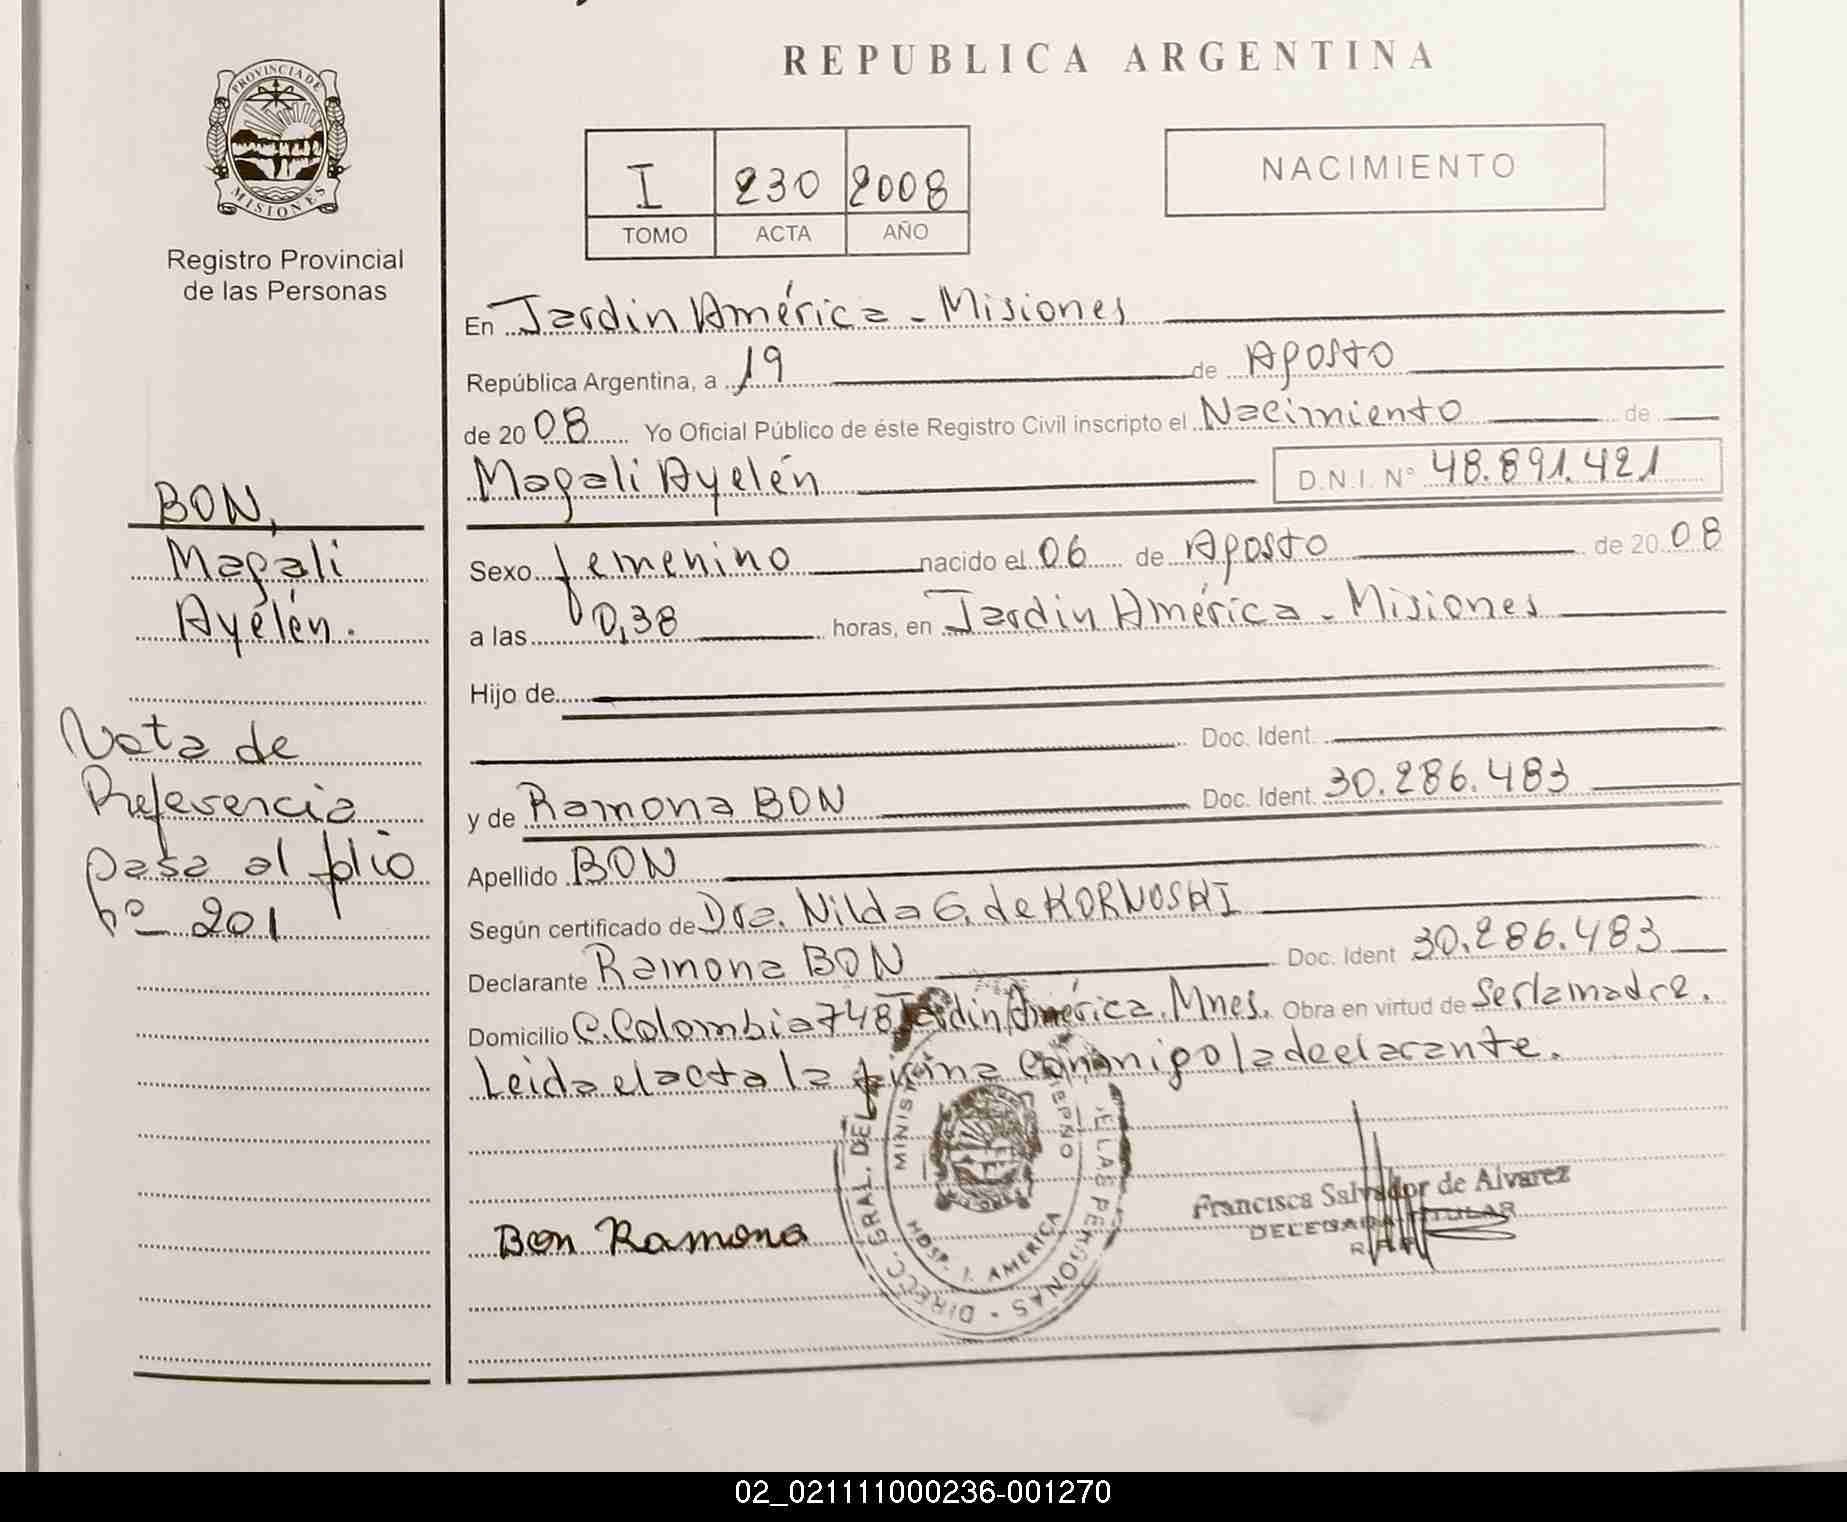 REPUBLICA ARGENTINA
PROVINCIA DE
MISIONES
Registro Provincial
de las Personas
I 230 2008
TOMO ACTA AÑO
NACIMIENTO
En Jardin América - Misiones
República Argentina, a 19 de Agosto
de 20 08 Yo Oficial Público de éste Registro Civil inscripto el Nacimiento de
Magali Ayelén D.N.I. Nº 48.891.421
Sexo femenino nacido el 06 de Agosto de 20 08
a las 0,38 horas, en Jardin América - Misiones
Hijo de
Doc. Ident.
y de Ramona BON Doc. Ident. 30.286.483
Apellido BON
Según certificado de Dra. Nilda G. de KORNOSKI
Declarante Ramona BON Doc. Ident 30.286.483
Domicilio C. Colombia 748 Jardin América. Mnes. Obra en virtud de Ser la madre.
Leida el acta la firma conmigo la declarante.
BON,
Magali
Ayelén.
Nota de
Referencia
pasa al folio
nº 201
Bon Ramona
DIRECC. GRAL. DEL
HOSP. J. AMERICA
Francisca Salvador de Alvarez
DELEGADA TITULAR
02_021111000236-001270